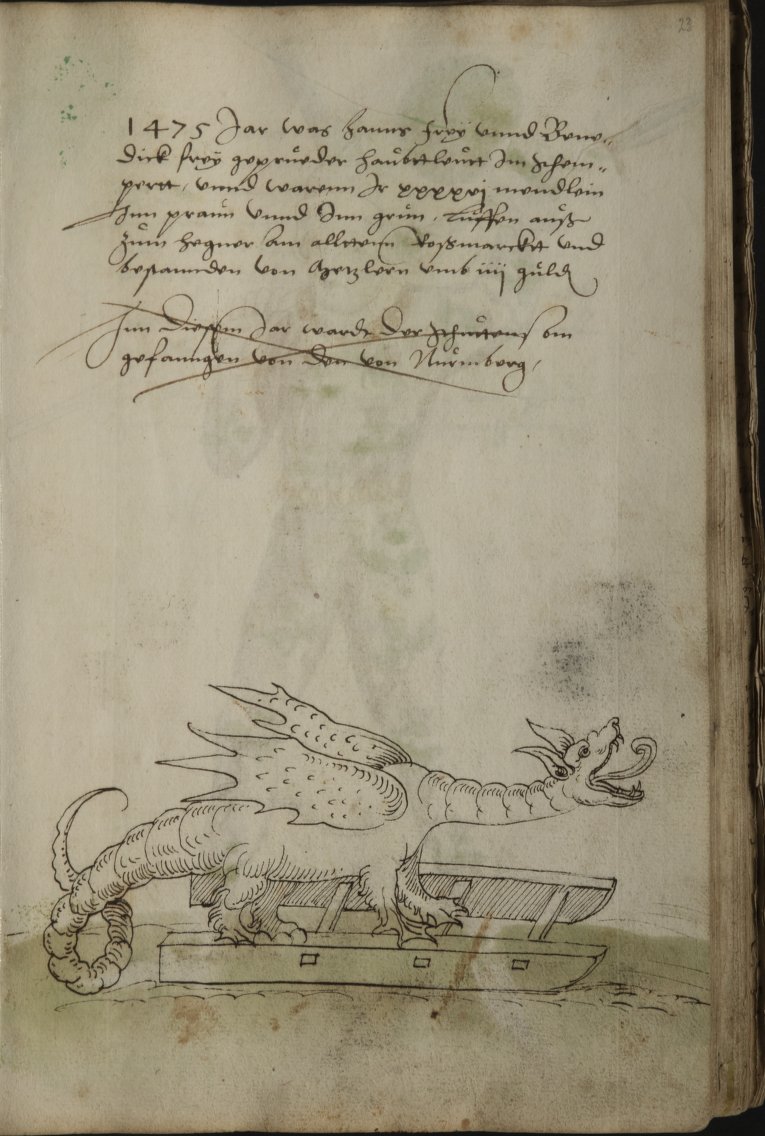 23
1475 Jar was hanns frey vnnd Bene=
dick frey geprueder haubttleütt Im schem=
pertt, vnnd warenn Ir xxxxxj mendlein
Inn praun vnnd Inn grün, Luffen auß
zum hegner am alltenn Roßmarckt vnd
bestannden von Metzlern vmb iiij güld
Inn diessem Jar wardt der
gefanngen von den von Nürmberg,